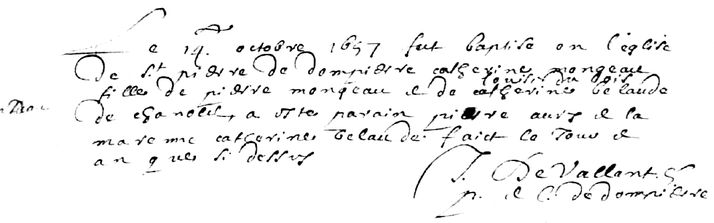 Le 14e octobre 1657 fut baptise en l'eglise
De st pierre de dompierre catherine mongeau
filles de pierre mongeau et de catherine belaude
du bois
de a este parain pierre et la
mareine catherine belaude faict le Jour et
an que si dessus
J. De Vallant
p. et c. de dompierre